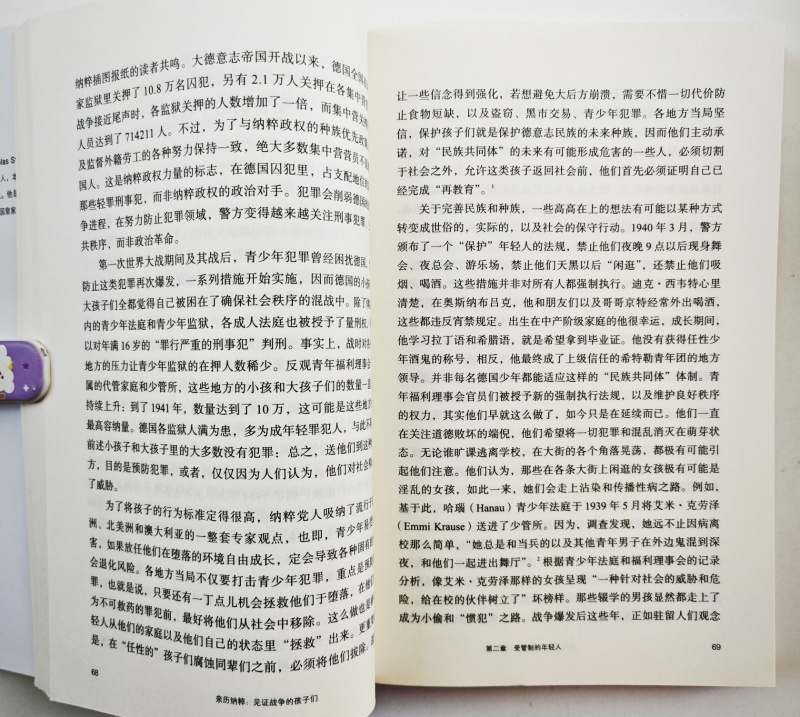 纳粹插图报纸的读者共鸣。大德意志帝国开战以来，德国全国
家监狱里关押了 10.8 万名囚犯，另有 2.1 万人关押在各集中营
战争接近尾声时，各监狱关押的人数增加了一倍，而集中营关
人员达到了 714211 人。不过，为了与纳粹政权的种族优先政
及监督外籍劳工的各种努力保持一致，绝大多数集中营营员不
国人。这是纳粹政权力量的标志，在德国囚犯里，占支配地位的
那些轻罪刑事犯，而非纳粹政权的政治对手。犯罪会削弱德国的
争进程，在努力防止犯罪领域，警方变得越来越关注刑事犯罪
共秩序，而非政治革命。
第一次世界大战期间及其战后，青少年犯罪曾经困扰德国，
防止这类犯罪再次爆发，一系列措施开始实施，因而德国的小
大孩子们全都觉得自己被困在了确保社会秩序的混战中。除了
内的青少年法庭和青少年监狱，各成人法庭也被授予了量刑权，
以对年满 16 岁的“罪行严重的刑事犯”判刑。事实上，战时对
地方的压力让青少年监狱的在押人数稀少。反观青年福利理事会
属的代管家庭和少管所，这些地方的小孩和大孩子们的数量一直
持续上升：到了 1941 年，数量达到了 10 万，这可能是这些地方
最高容纳量。德国各监狱人满为患，多为成年轻罪犯人，与此不
前述小孩子和大孩子里的大多数没有犯罪：总之，送他们到这种
方，目的是预防犯罪，或者，仅仅因为人们认为，他们对社会构
了威胁。
为了将孩子的行为标准定得很高，纳粹党人吸纳了流行于
洲、北美洲和澳大利亚的一整套专家观点，也即，青少年最
害，如果放任他们在堕落的环境自由成长，定会导致各种固有的
会退化风险。各地方当局不仅要打击青少年犯罪，重点是预
罪，也就是说，只要还有一丁点儿机会拯救他们于堕落，在他
为不可救药的罪犯前，最好将他们从社会中移除。这么做也是
轻人从他们的家庭以及他们自己的状态里“拯救”出来。更重要
是，在“任性的”孩子们腐蚀同辈们之前，必须将他们拔除。
68
亲历纳粹：见证战争的孩子们
让一些信念得到强化，若想避免大后方崩溃，需要不惜一切代价防
止食物短缺，以及盗窃、黑市交易、青少年犯罪。各地方当局坚
信，保护孩子们就是保护德意志民族的未来种族，因而他们主动承
诺，对“民族共同体”的未来有可能形成危害的一些人，必须切割
于社会之外，允许这类孩子返回社会前，他们首先必须证明自己已
经完成“再教育”。1
关于完善民族和种族，一些高高在上的想法有可能以某种方式
转变成世俗的，实际的，以及社会的保守行动。1940 年 3 月，警方
颁布了一个“保护”年轻人的法规，禁止他们夜晚 9 点以后现身舞
会、夜总会、游乐场，禁止他们天黑以后“闲逛”，还禁止他们吸
烟、喝酒。这些措施并非对所有人都强制执行。迪克·西韦特心里
清楚，在奥斯纳布吕克，他和朋友们以及哥哥京特经常外出喝酒，
这些都违反宵禁规定。出生在中产阶级家庭的他很幸运，成长期间，
他学习拉丁语和希腊语，就是希望拿到毕业证。他没有获得任性少
年酒鬼的称号，相反，他最终成了上级信任的希特勒青年团的地方
领导。并非每名德国少年都能适应这样的“民族共同体”体制。青
年福利理事会官员们被授予新的强制执行法规，以及维护良好秩序
的权力，其实他们早就这么做了，如今只是在延续而已。他们一直
在关注道德败坏的端倪，他们希望将一切犯罪和混乱消灭在萌芽状
态。无论谁旷课逃离学校，在大街的各个角落晃荡，都极有可能引
起他们注意。他们认为，那些在各条大街上闲逛的女孩极有可能是
淫乱的女孩，如此一来，她们会走上沾染和传播性病之路。例如，
基于此，哈瑙（Hanau）青少年法庭于 1939 年 5 月将艾米·克劳泽
（Emmi Krause）送进了少管所。因为，调查发现，她远不止因病离
校那么简单，“她总是和当兵的以及其他青年男子在外边鬼混到深
夜，和他们一起进出舞厅”。2根据青少年法庭和福利理事会的记录
分析，像艾米·克劳泽那样的女孩呈现“一种针对社会的威胁和危
险，给在校的伙伴树立了”坏榜样。那些辍学的男孩显然都走上了
成为小偷和“惯犯”之路。战争爆发后这些年，正如驻留人们观念
第二章 受管制的年轻人
69